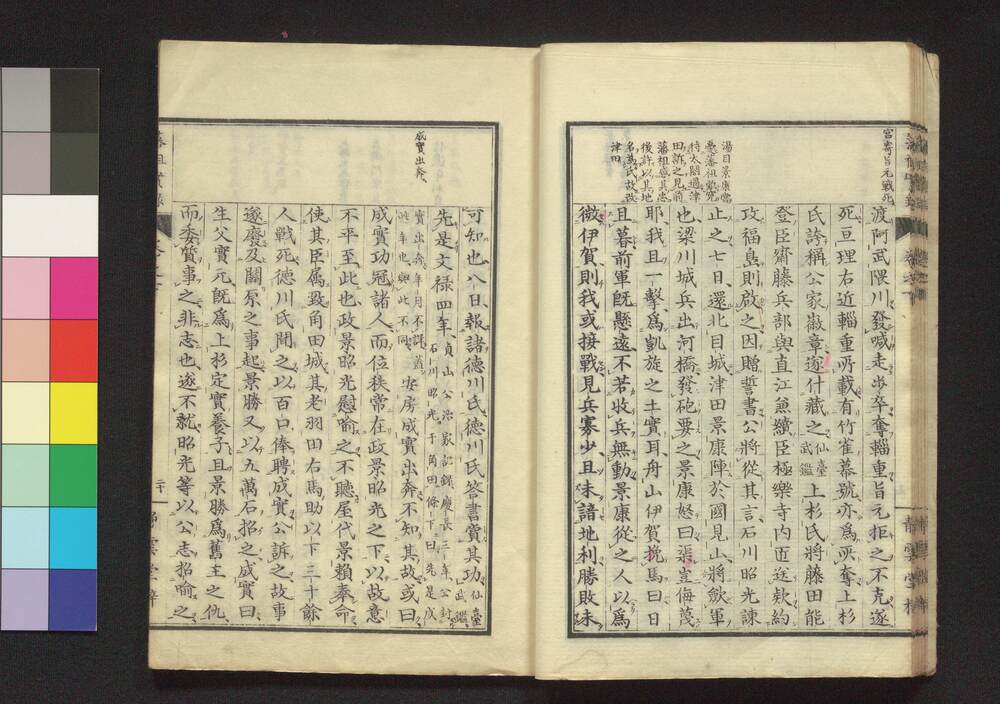 宮崎旨元戰死
渡阿武隈川發喊走步卒奪輜重旨元拒之不克遂
死亘理右近輜重所載有竹雀幕號亦爲所奪上杉
氏誇稱公家徽章遂什藏之仙臺武鑑上杉氏將藤田能
登臣齋藤兵部與直江兼續臣極樂寺內匠送欵約
攻福島則啟之因贈誓書公將從其言石川昭光諫
止之七日還北目城津田景康陣於國見山將斂軍
也梁川城兵出河橋發砲要之景康怒曰渠豈侮蔑
耶我且一擊爲凱旋之土實耳舟山伊賀挽馬曰日
且暮前軍旣懸遠不若收兵無動景康從之人以爲
微伊賀則我或接戰見兵寡少且未諳地利勝敗未
湯目景康
田訴之見前
藩祖感其忠
後許以其地
名爲氏故改
津田
成實出奔
可知也八日報諸德川氏德川氏答書賞其功仙臺武鑑
先是文祿四年貞山公治家記錄慶長三年公封
石川昭光于角田條下曰先是成
實出奔年月不詳蓋
此年也與此不同安房成實出奔不知其故或曰
成實功冠諸人而位秩常在政景昭光之下以故意
不平至此也政景昭光慰喻之不聽屋代景賴奉命
使其臣屬致角田城其老羽田右馬助以下三十餘
人戰死德川氏聞之以百口俸聘成實公訴之故事
遂廢及關原之事起景勝又以五萬石招之成實曰
生父實元旣爲上杉定實養子且景勝爲舊主之仇
而委質事之非志也遂不就昭光等以公志招喻之